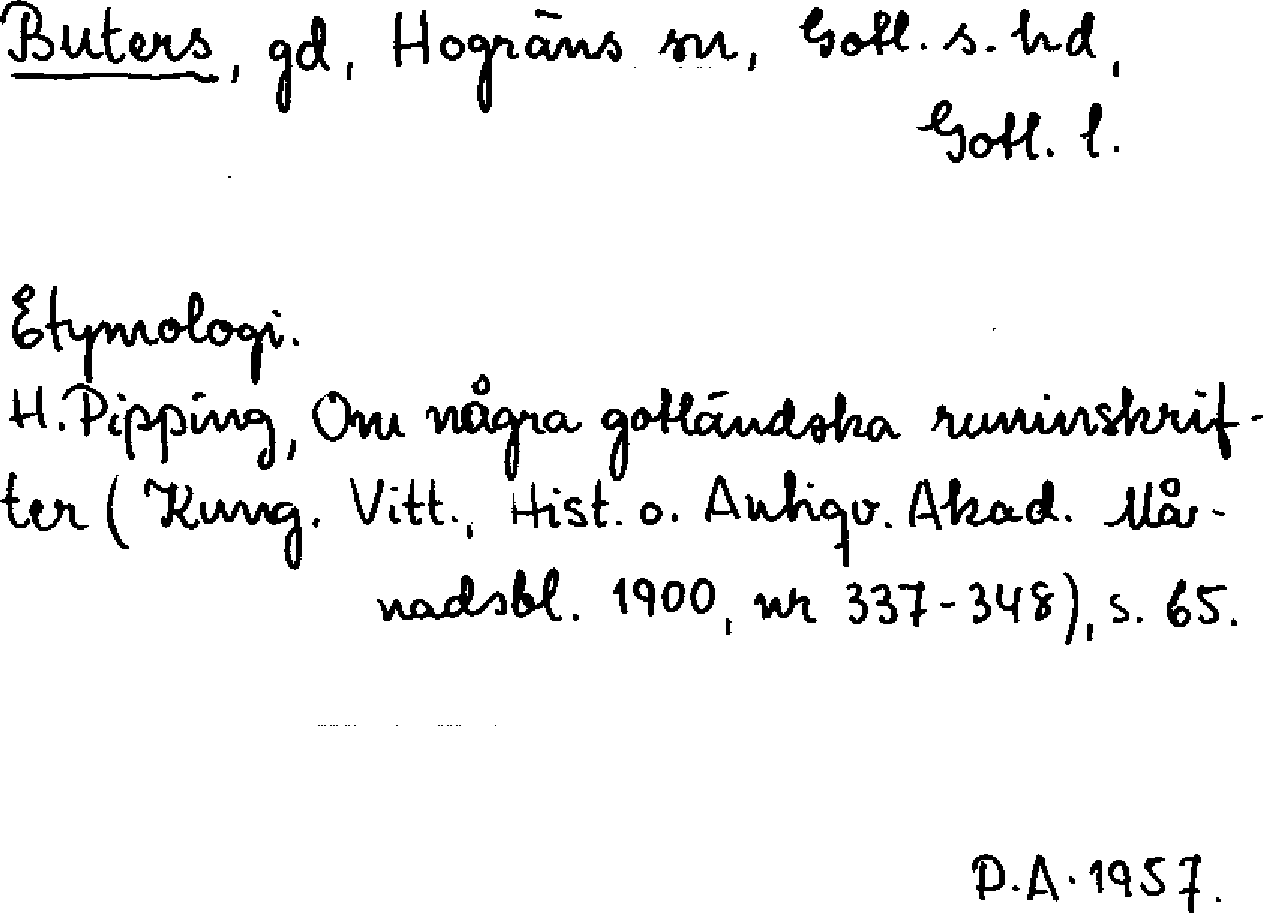 Buters, gd, Hogräns sn, Gotl. s. hd,
Gotl. l.
Etymologi.
H. Pipping, Om några gotländska runinskrif-
ter (Kung. Vitt., Hist. o. Antiqv. Akad. Må-
nadsbl. 1900, nr 337-348), s. 65.
P.A. 1957.